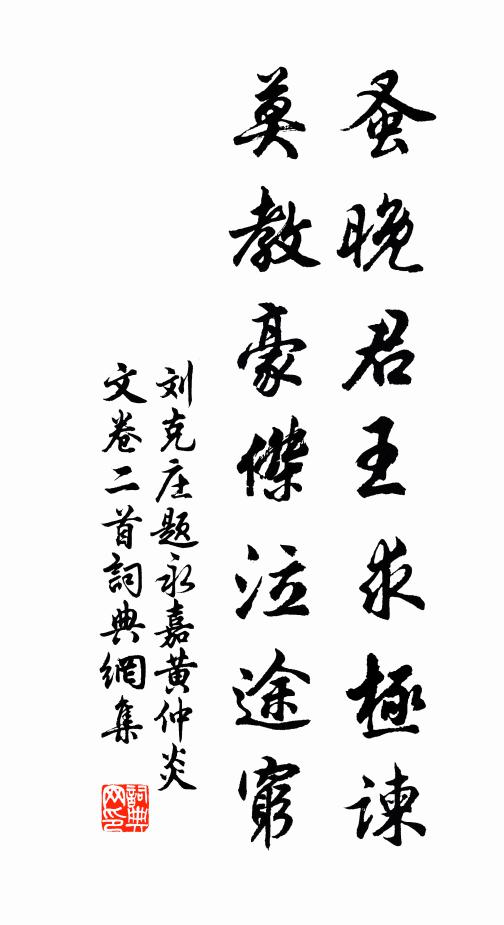 蚤晚君王求極諫
莫教豪傑泣途窮
刘克庄题永嘉黄仲炎
文卷二首詞典網集
詞典网印